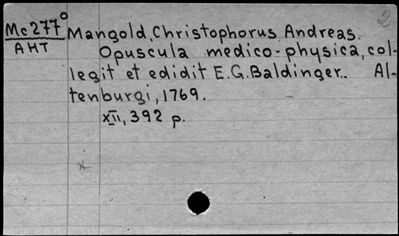 2
Mc277° Mangold, Christophorus Andreas.
AHT Opuscula medico-physica, col-
legit et edidit E.G.Baldinger.. Al-
tenburgi, 1769.
XII, 392 p.